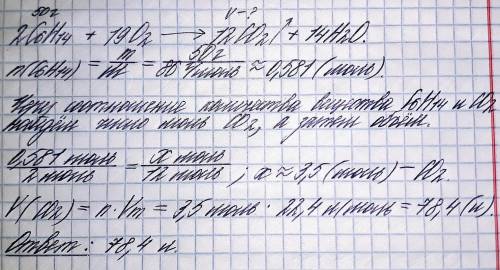 50г V-?
2C6H14 + 19O2 → 12CO2↑ + 14H2O.
n(C6H14) = m/M = 50г/86 г/моль ≈ 0,581 (моль).
Через соотношение количества вещества C6H14 и CO2
найдём число моль CO2, а затем объём.
0,581 моль/2 моль = x моль/12 моль ; x ≈ 3,5 (моль) - CO2.
V(CO2) = n · Vm = 3,5 моль · 22,4 л/моль = 78,4 (л).
Ответ: 78,4 л.